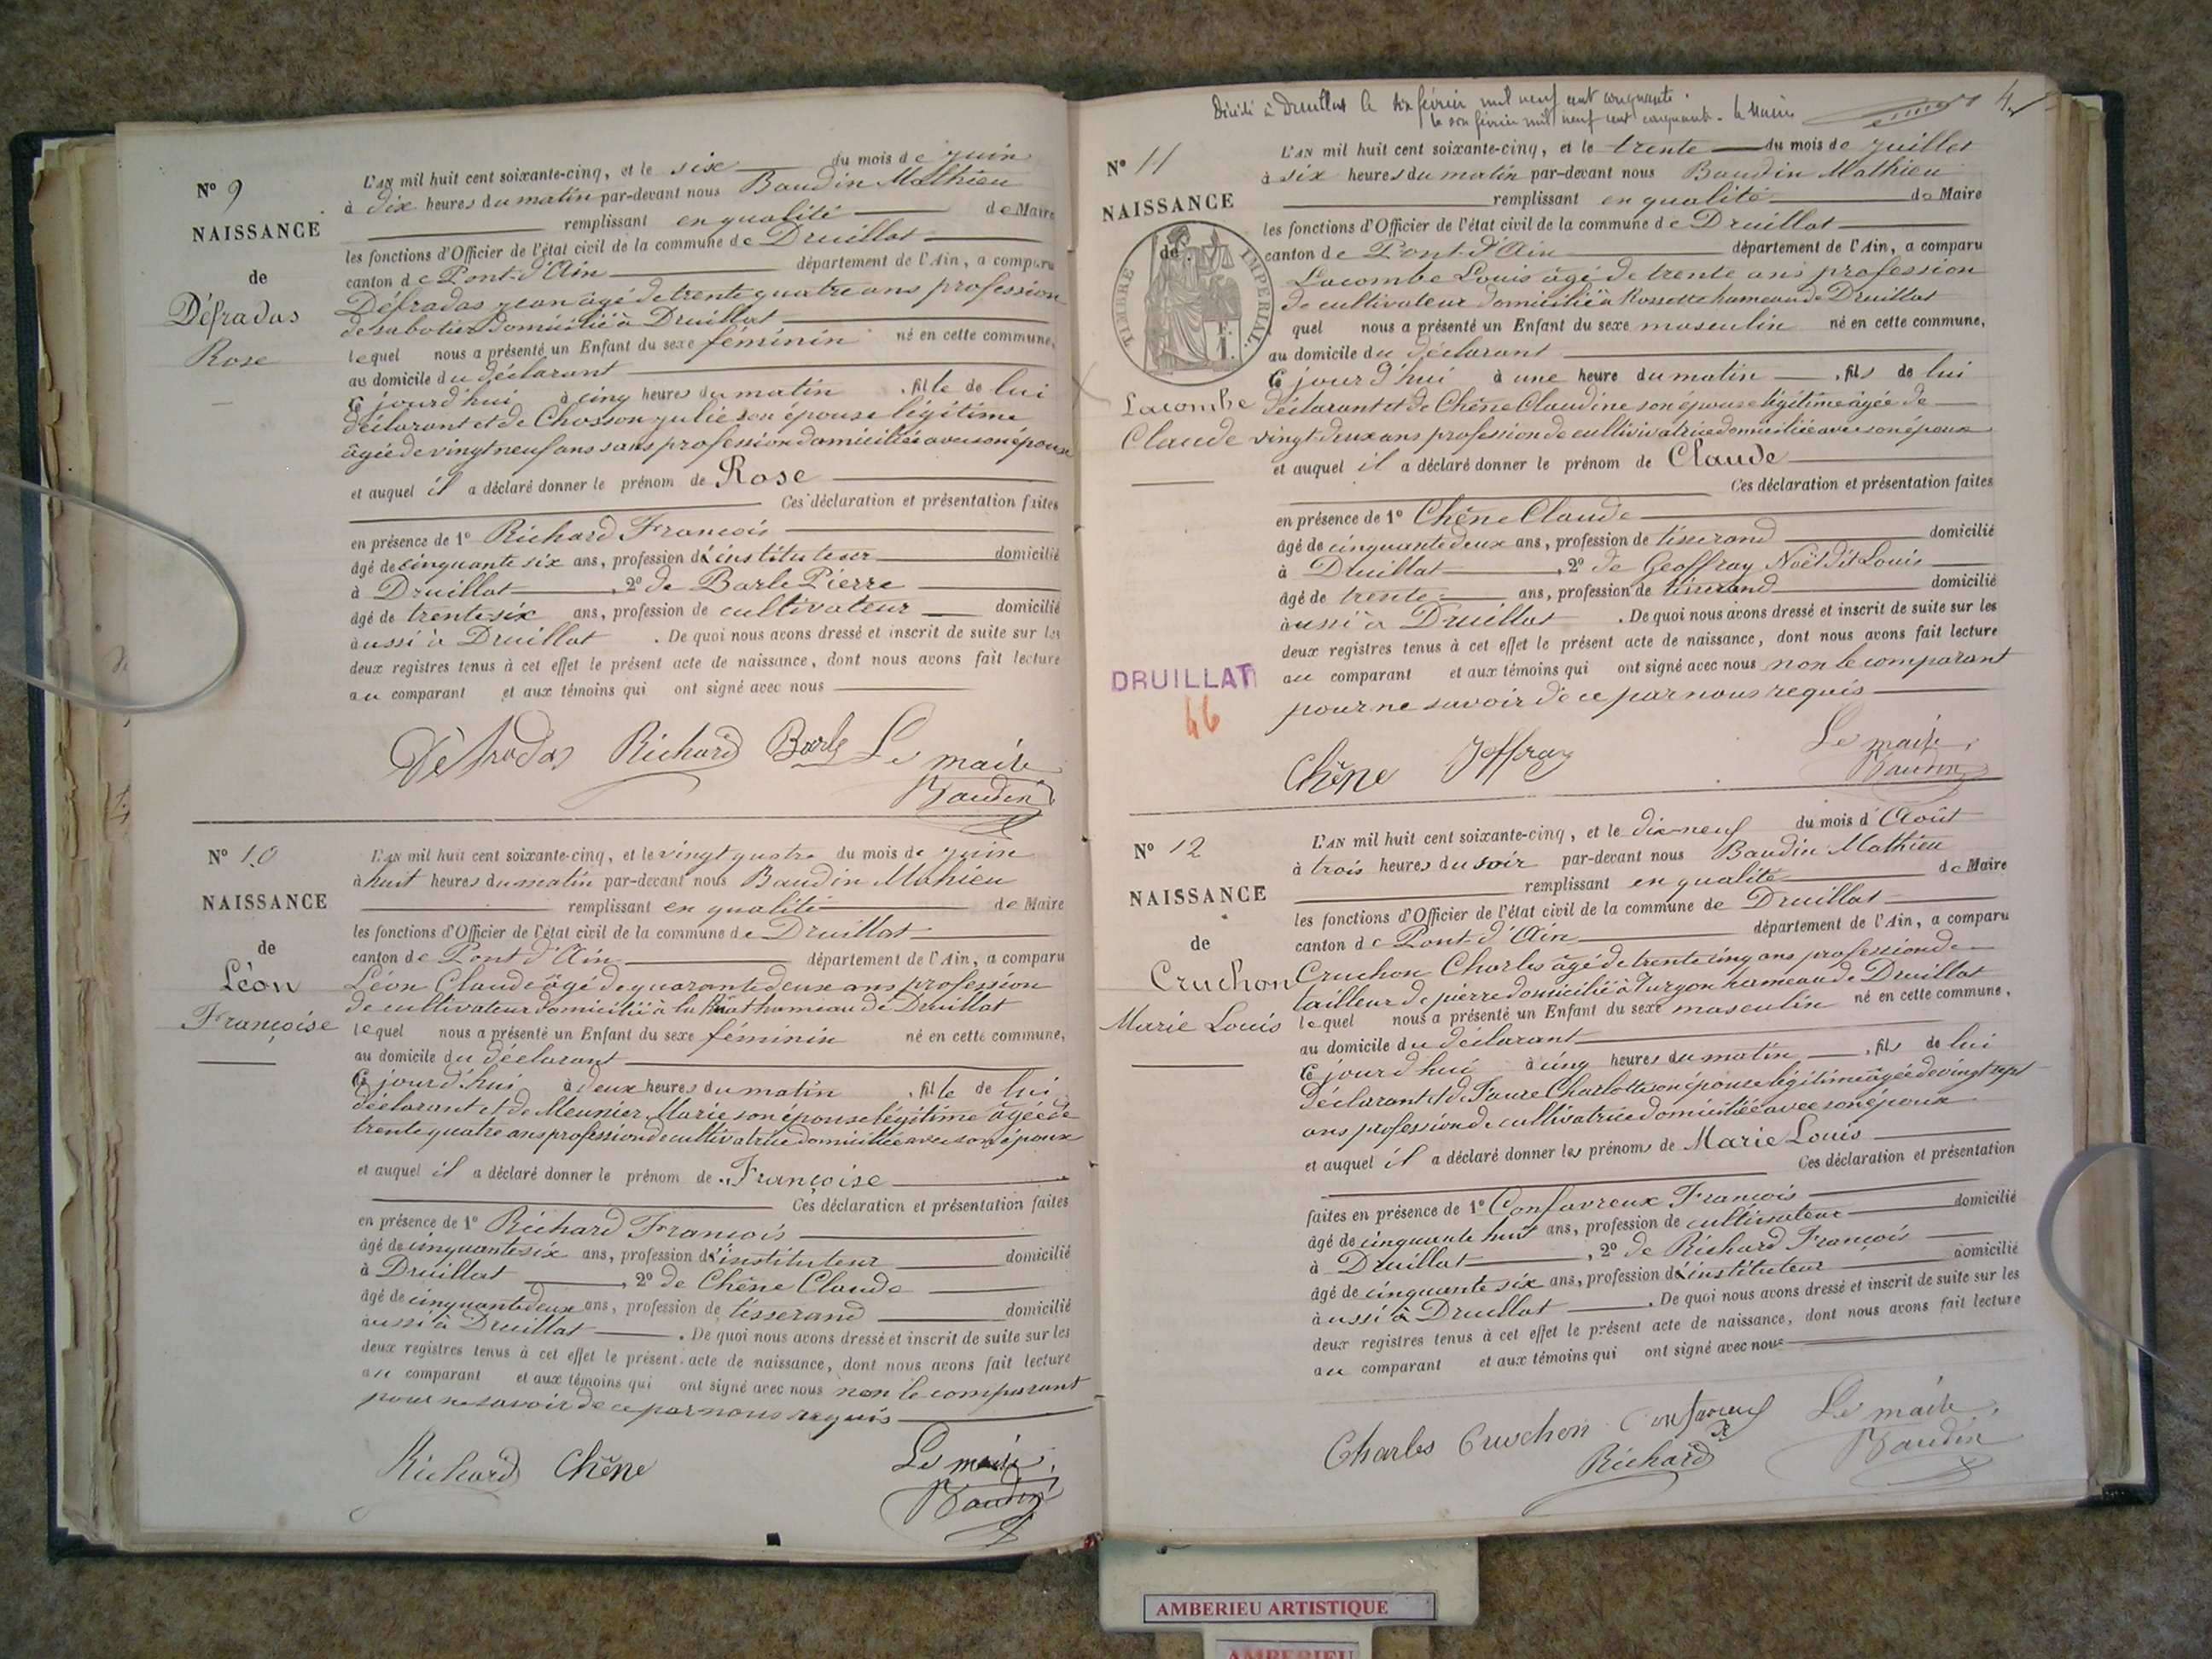 N° 9
NAISSANCE
de
Défradas
Rose
L'AN mil huit cent soixante-cinq, et le six du mois de juin
à dix heures du matin par-devant nous Baudin Mathieu
remplissant en qualité de Maire
les fonctions d'Officier de l'état civil de la commune de Druillat
canton de Pont-d'Ain département de l'Ain, a comparu
Défradas Jean âgé de trente quatre ans profession
de sabotier domicilié à Druillat
lequel nous a présenté un Enfant du sexe féminin né en cette commune,
au domicile du déclarant
Ce jourd'hui à cinq heures du matin , fille de lui
déclarant et de Chosson Julie son épouse légitime
âgée de vingt neuf ans sans profession domiciliée avec son époux
et auquel il a déclaré donner le prénom de Rose
Ces déclaration et présentation faites
en présence de 1° Richard François
âgé de cinquante six ans, profession d'instituteur domicilié
à Druillat , 2° de Barle Pierre
âgé de trente six ans, profession de cultivateur domicilié
aussi à Druillat . De quoi nous avons dressé et inscrit de suite sur les
deux registres tenus à cet effet le présent acte de naissance, dont nous avons fait lecture
au comparant et aux témoins qui ont signé avec nous
Défradas Richard Barle Le maire
Baudin
N° 10
NAISSANCE
de
Léon
Françoise
L'AN mil huit cent soixante-cinq, et le vingt quatre du mois de juin
à huit heures du matin par-devant nous Baudin Mathieu
remplissant en qualité de Maire
les fonctions d'Officier de l'état civil de la commune de Druillat
canton de Pont d'Ain département de l'Ain, a comparu
Léon Claude âgé de quarante deux ans profession
de cultivateur domicilié à la hameau de Druillat
lequel nous a présenté un Enfant du sexe féminin né en cette commune,
au domicile du déclarant
Ce jourd'hui à deux heures du matin , fille de lui
déclarant et de Meunier Marie son épouse légitime âgée de
trente quatre ans profession de cultivatrice domiciliée avec son époux
et auquel il a déclaré donner le prénom de Françoise
Ces déclaration et présentation faites
en présence de 1° Richard François
âgé de cinquante six ans, profession d'instituteur domicilié
à Druillat , 2° de Chêne Claude
âgé de cinquante deux ans, profession de tisserand domicilié
aussi à Druillat . De quoi nous avons dressé et inscrit de suite sur les
deux registres tenus à cet effet le présent acte de naissance, dont nous avons fait lecture
au comparant et aux témoins qui ont signé avec nous non le comparant
pour ne savoir de ce par nous requis
Richard Chêne Le maire
Baudin
Décédé à Druillat le six février mil neuf cent cinquante.
le février mil neuf cent cinquante. le Maire
4
N° 11
NAISSANCE
de
TIMBRE IMPERIAL
Lacombe
Claude
DRUILLAT
46
L'AN mil huit cent soixante-cinq, et le trente du mois de juillet
à six heures du matin par-devant nous Baudin Mathieu
remplissant en qualité de Maire
les fonctions d'Officier de l'état civil de la commune de Druillat
canton de Pont-d'Ain département de l'Ain, a comparu
Lacombe Louis âgé de trente ans profession
de cultivateur domicilié à Rossette hameau de Druillat
quel nous a présenté un Enfant du sexe masculin né en cette commune,
au domicile du déclarant
Ce jourd'hui à une heure du matin , fils de lui
déclarant et de Chêne Claudine son épouse légitime âgée de
vingt deux ans profession de cultivivatrice domiciliée avec son époux
et auquel il a déclaré donner le prénom de Claude
Ces déclaration et présentation faites
en présence de 1° Chêne Claude
âgé de cinquante deux ans, profession de tisserand domicilié
à Druillat , 2° de Geoffray Noël dit Louis
âgé de trente ans, profession de tisserand domicilié
aussi à Druillat . De quoi nous avons dressé et inscrit de suite sur les
deux registres tenus à cet effet le présent acte de naissance, dont nous avons fait lecture
au comparant et aux témoins qui ont signé avec nous non le comparant
pour ne savoir de ce par nous requis
Chêne Joffray Le maire
Baudin
N° 12
NAISSANCE
de
Cruchon
Marie Louis
L'AN mil huit cent soixante-cinq, et le dix-neuf du mois d'Août
à trois heures du soir par-devant nous Baudin Mathieu
remplissant en qualité de Maire
les fonctions d'Officier de l'état civil de la commune de Druillat
canton de Pont-d'Ain département de l'Ain, a comparu
Cruchon Charles âgé de trente cinq ans profession de
tailleur de pierre domicilié à Turgon hameau de Druillat
lequel nous a présenté un Enfant du sexe masculin né en cette commune,
au domicile du déclarant
Ce jourd'hui à cinq heures du matin , fils de lui
déclarant et de Faure Charlotte son épouse légitime âgée de vingt sept
ans profession de cultivatrice domiciliée avec son époux
et auquel il a déclaré donner les prénoms de Marie Louis
Ces déclaration et présentation
faites en présence de 1° Confavreux François
âgé de cinquante huit ans, profession de cultivateur domicilié
à Druillat , 2° de Richard François
âgé de cinquante six ans, profession d'instituteur domicilié
aussi à Druillat . De quoi nous avons dressé et inscrit de suite sur les
deux registres tenus à cet effet le présent acte de naissance, dont nous avons fait lecture
au comparant et aux témoins qui ont signé avec nous
Charles Cruchon Confavreux Le maire
Richard Baudin
AMBERIEU ARTISTIQUE
AMBERIEU